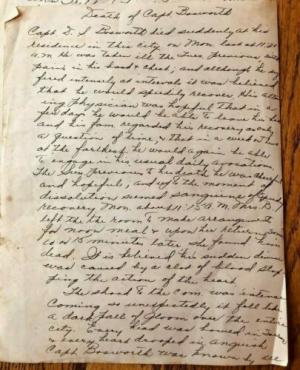 Death of Capt Bosworth
Capt. D. S Bosworth died suddenly at his
residence in this city on Mon last at 11.30
A.M He was taken ill the Tues. previous with
pains in his head & chest, and although he suf
fered intensely at intervals it was believed
that he would speedily recover. His attend
ing physician was hopeful that in a
few days he would be able to leave his bed
and his fam regarded his recovery as only
a question of time, & that in a week or two
at the farthest he would again be able
to engage in his usual daily avocation.
The Sun previous to his death he was cheerful
and hopeful, and up to the moment of
dissolution seemed sanguine of
recovery Mon about 11.15 A.M, Mrs B
left the room to make arrangements
for noon meal & upon her return some
10 or 15 minutes later she found him
dead. It is believed his sudden demise
was caused by a clot of blood stop
ping the action of the heart
The shock to the com. was intense
Coming so unexpectedly it fell like
a dark pall of gloom over the entire
city. Every head was bowed in sorrow
& every heart drooped in anguish
Capt Bosworth was known by all